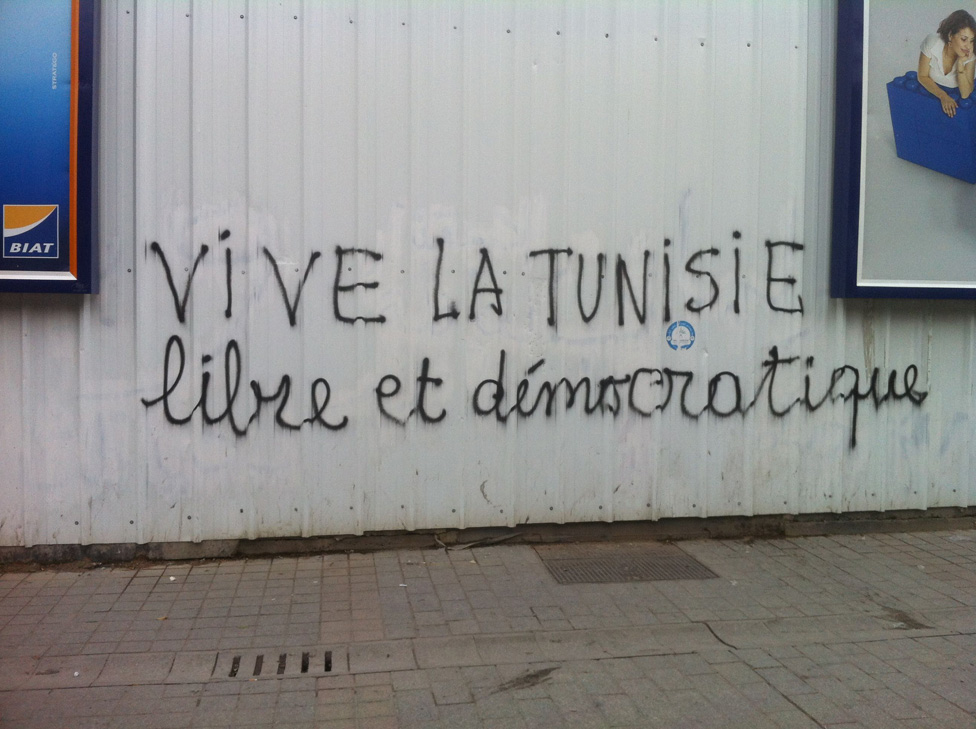 STRATEGO
BIAT
ViVE LA TUNiSiE
libre et démocratique